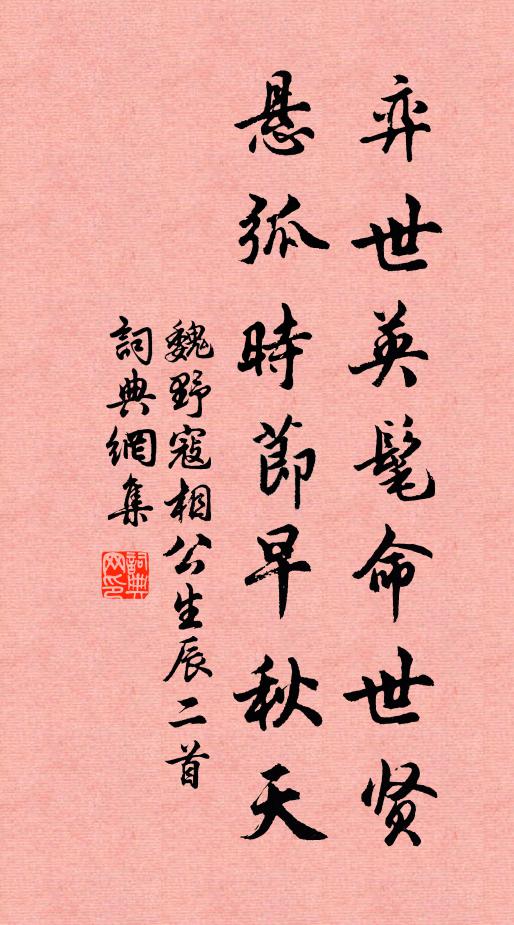 弈世英髦命世贤
悬弧時節早秋天
魏野寇相公生辰二首
詞典網集
詞典网印